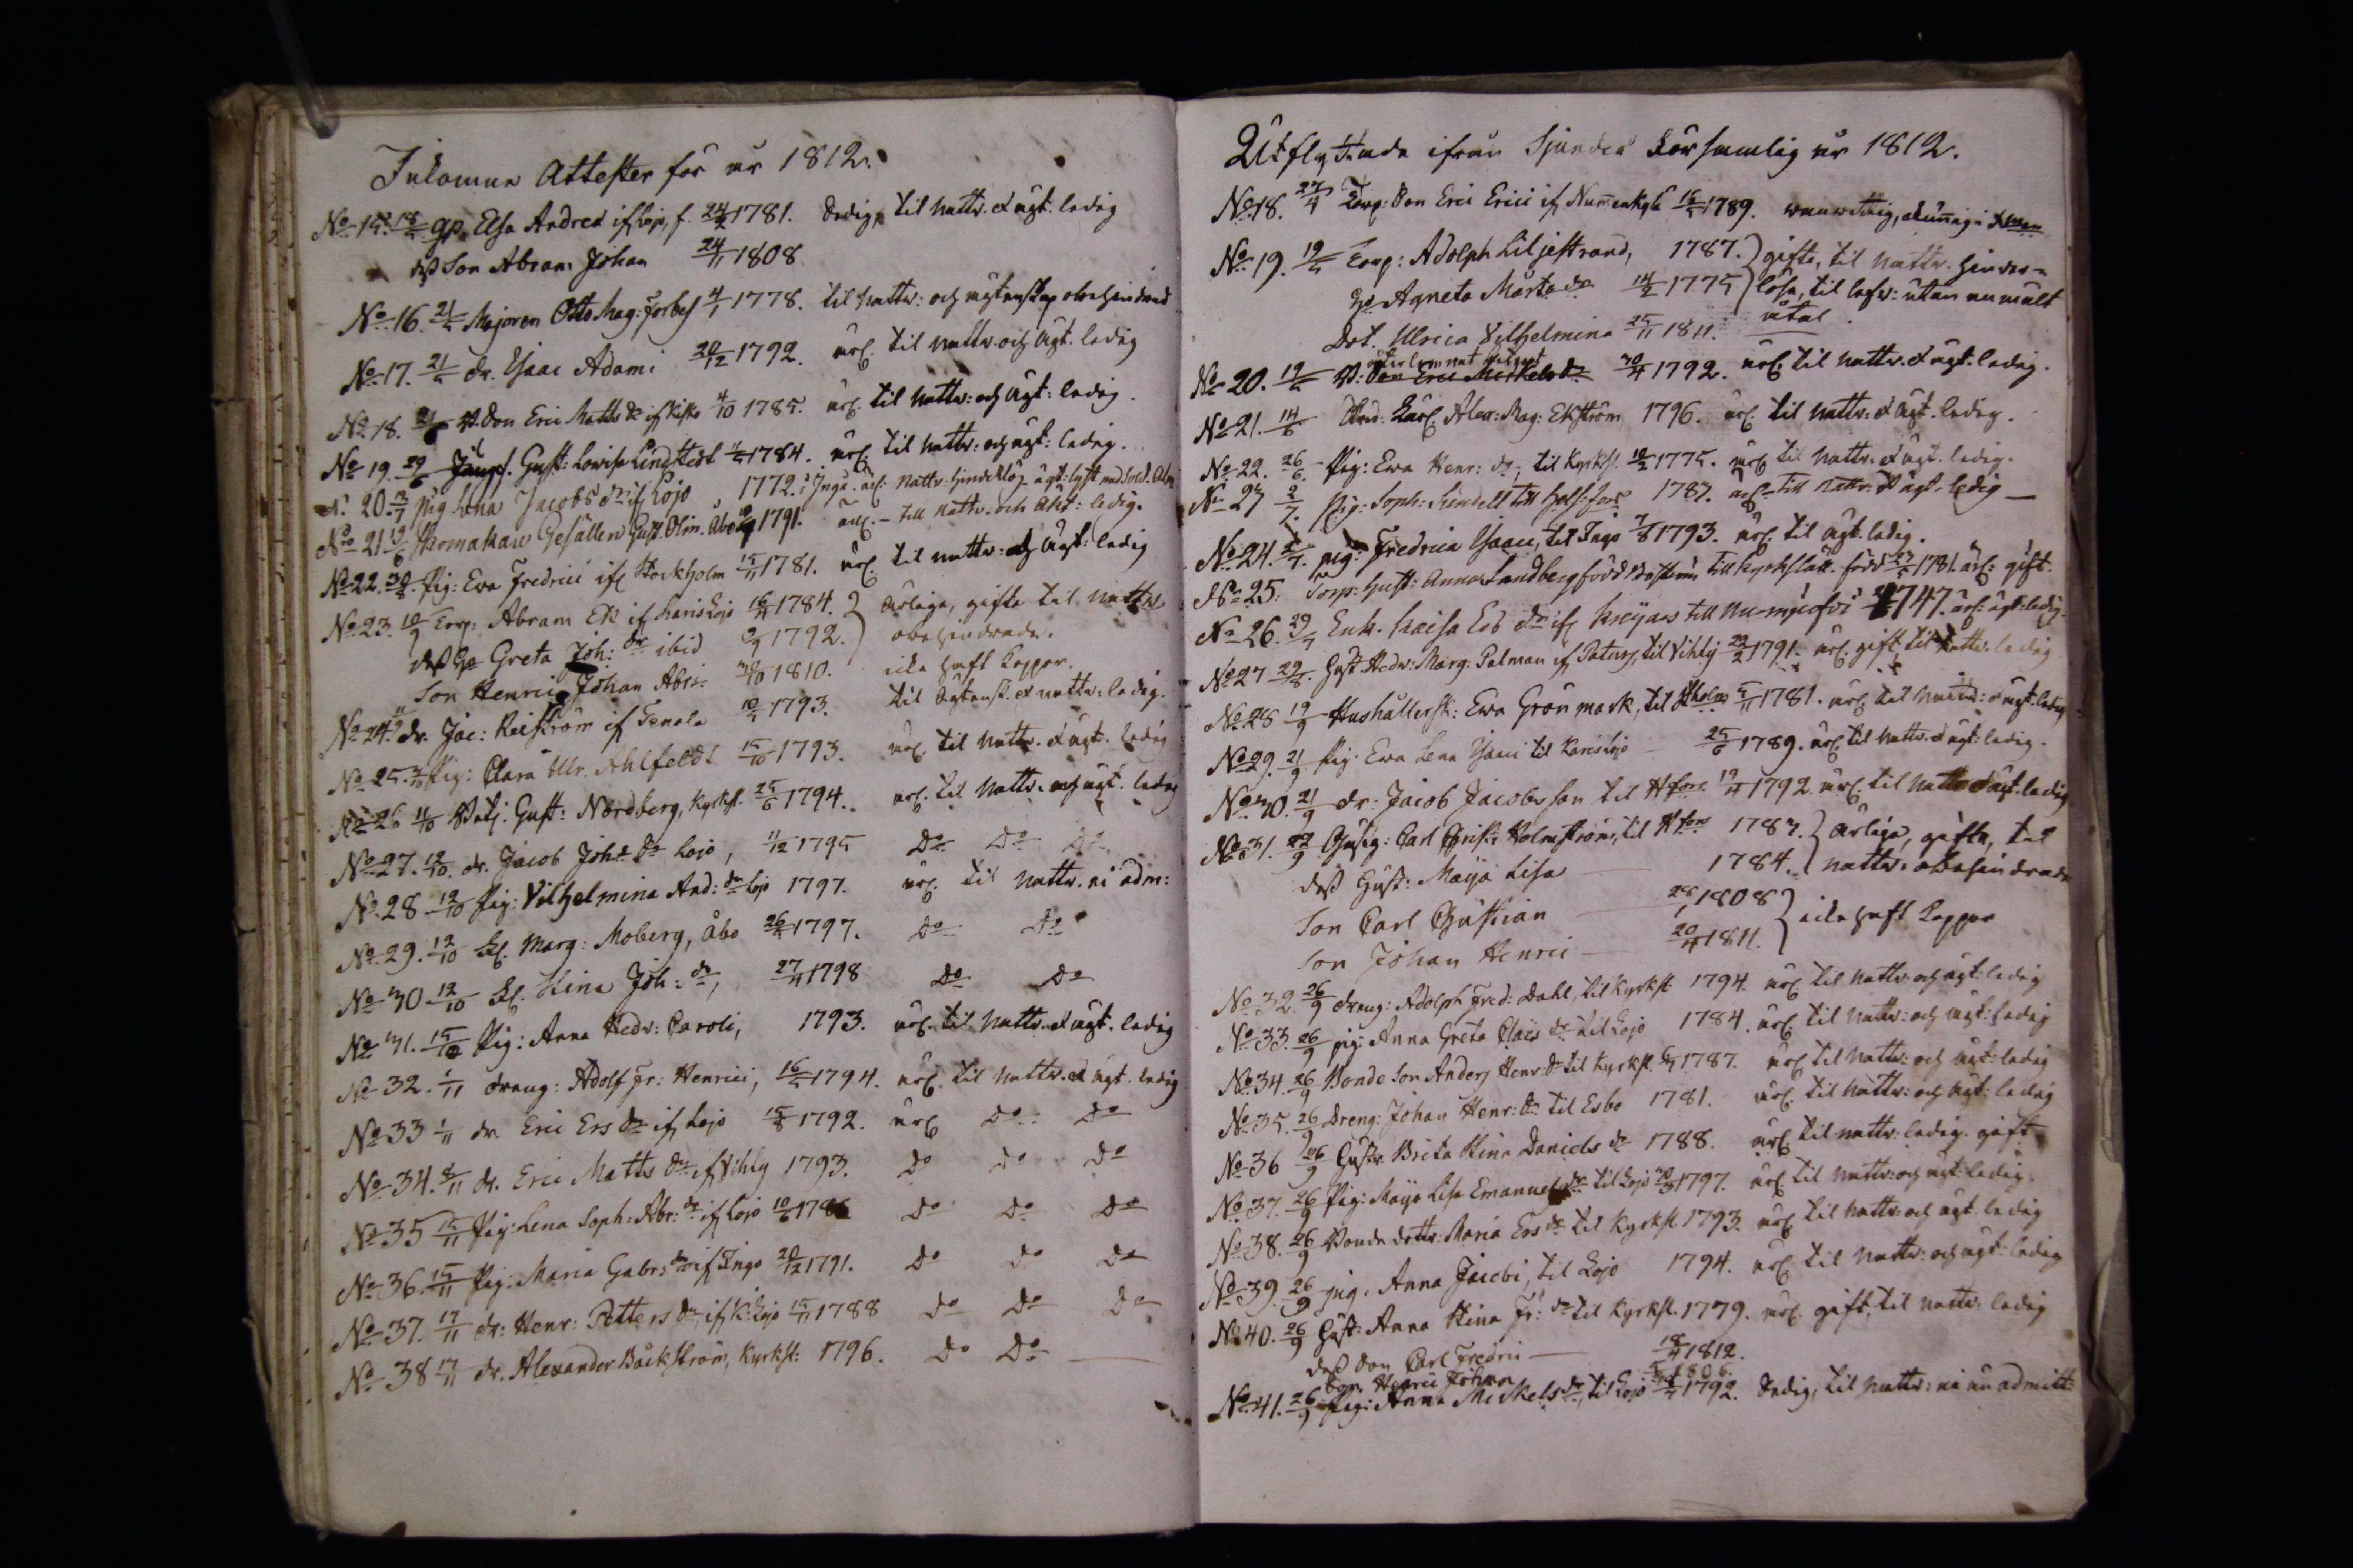 Inkomne Attester för år 1812.
No 15. 18/5 gp. Elsa Andreæ if Lojo, f. 24/2 1781. ledig, til nattv. & ägt. ledig
dess Son Abram Johan 24/11 1808
No 16. 21/5 Majoren Otto Mag: Forbes 4/1 1778. til nattv: och ägtenskap obehindrad
No 17. 21/5 dr. Isaac Adami 20/12 1792. ärl. til nattv. och ägt. ledig
No 18. B. Son Eric Matts Sn if Kisko 4/10 1785. ärl. til nattv: och ägt: ledig.
No 19. 29/6 Jungf. Gust: Lowisa Lindstedt 1784. ärl. til nattv: och ägt: ledig.
No 20. pig Lena Jacobs dr if Lojo, 1772. i Ingå. ärl. Nattv: hinderlös
No 21 Skomakare Gesällen Gust. Olin. Åbo 1791. ärl. - till nattv. och Äkt: ledig.
No 22. 30/8. Pig: Ewa Fredrici if Stockholm 15/11 1781. ärl. til nattv: och ägt: ledig
No 23. 10/9 Torp: Abram Ek if Karislojo 16/4 1784. ärliga, gifta til nattv.
dess Ge Greta Joh: dr ibid 1792. obehindrade.
Son Henric Johan Abr: 30/10 1810. icke haft koppor.
No 24. 11/9 dr. Jac: Reiström if Tenala 10/5 1793. til ägtensk. & nattv: ledig.
No 25. Pig: Clara Ulr. Ahlfeldt 15/10 1793. ärl. til nattv. & ägt. ledig
No 26 11/10 Betj. Gust: Nordberg, Kyrksl. 25/6 1794. ärl. til nattv. och ägt. ledig
No 27. 12/10. dr. Jacob Joh: Sn Lojo, 11/12 1795 Do Do Do
No 28 12/10 Pig: Vilhelmina And: dr Lojo 1797. ärl. til nattv. ei adm:
No 29. 12/10 Marg: Moberg, Åbo 26/4 1797. Do Do
No 30 12/10 Stina Joh: dr, 27/4 1798 Do Do
No 31. 15/10 Pig: Anna Hedv: Caroli, 1793. ärl. til nattv. & ägt. ledig
No 32. 1/11 dräng: Adolf Fr: Henrici, 16/5 1794. ärl. til nattv. & ägt. ledig
No 33 1/11 dr. Eric Ers Sn if Lojo 15/8 1792. ärl Do Do
No 34. 8/11 dr. Eric Matts Sn if Vihty 1793. Do Do Do
No 35 15/11 Pig: Lena Soph: Abr: dr if Lojo 10/6 Do Do Do
No 36. 15/11 Pig: Maria Gabr: dr if Ingo 20/12 1791. Do Do Do
No 37. 17/11 dr: Henr: Petters Sn if K: Lojo 15/11 1788 Do Do Do
No 38 17/11 dr. Alexander Bäckström, Kyrksl: 1796. Do Do
Utflyttade ifrån Sjundeå Församling år 1812.
No 18. 27/4 Torp: Son Eric Erici if Nummenkylä 1789.
No 19. 19/5 Torp: Adolph Liljestrand, 1787. gifte, til nattv. hinder=
Ge Agneta Märta dr 14/2 1775 lösa, til lefv: utan anmält
Dot. Ulrica Vilhelmina 25/11 1811. åtal.
No 20. 19/5 B: Son Eric Mickels Sn 30/4 1792. ärl. til nattv. & ägt. ledig.
No 21. 14/6 Alex: Mag: Ekström 1796. ärl. til nattv: & ägt. ledig.
No 22. 26/6 Pig: Ewa Henr: dr, til Kyrksl. 1775. ärl til nattv: & ägt. ledig.
No 23 2/7. Pig: Soph: Lindell till Helsf:fors 1787. ärl- till nattv: & ägt- ledig
No 24. Pig: Fredrica Isaac, til Ingo 1793. ärl. til ägt. ledig.
No 25: Torp: Hust: Anna Sandberg född till Kyrkslätt. född 1781. ärl: gift.
No 26. 29/7 Enk. Kaisa Ers dr if till Nu-mijärvi 1747. ärl: ägt: ledig.
No 27 29/8. Hust. Hedv: Marg: Palman if til Vihty 22/2 1791. ärl. gift, til nattv. ledig
No 28 19/9 Hushållersk: Ewa Grönmark, til Stholm 1781. ärl. til nattv: & ägt. ledig
No 29. 21/9 Pig: Ewa Lena Isaaci til Karislojo 25/6 1789. ärl. til nattv. & ägt: ledig.
No 30. 21/9 dr: Jacob Jacobsson til Hfors 19/4 1792. ärl. til nattv & ägt. ledig
No 31. 22/9 Carl Christ: Holmström, til Hfors 1787. ärliga, gifta, til
dess Hust: Maija Lisa 1784. nattv. obehindrade
Son Carl Christian 28/1 1808 icke haft koppor
Son Johan Henric 20/4 1811.
No 32. 26/9 dräng: Adolph Fred: Dahl, til Kyrksl: 1794. ärl til nattv. och ägt: ledig
No 33. 26/9 pig: Anna Greta Claes dr til Lojo 1784. ärl. til nattv: och ägt: ledig
No 34. 26/9 Bonde Son Anders Henr: Sn til Kyrksl. 1787. ärl til nattv: och ägt: ledig
No 35. 26/9 Dreng: Johan Henr: Sn til Esbo 1781. ärl. til nattv: och ägt: ledig
No 36 26/9 Hustr. Brita Stina Daniels dr 1788. ärl. til nattv: ledig. gift
No 37. 26/9 Pig: Maija Lisa Emanuels dr til Lojo 1797. ärl til nattv: och ägt: ledig.
No 38. 26/9 Bonde dottr: Maria Ers dr til Kyrksl. 1793. ärl til nattv: och ägt. ledig
No 39. 26/9 pig. Anna Jacobi, til Lojo 1794. ärl til nattv: och ägt: ledig
No 40. 26/9 Hust: Anna Stina Fr: dr til Kyrksl. 1779. ärl. gift, til nattv: ledig
dess Son Carl Fredric 18/4 1812.
Son Henric Johan 1806.
No 41. 26/9 Pig: Anna Mickels dr, til Lojo 1792. ledig, til nattv: ei än admitt: